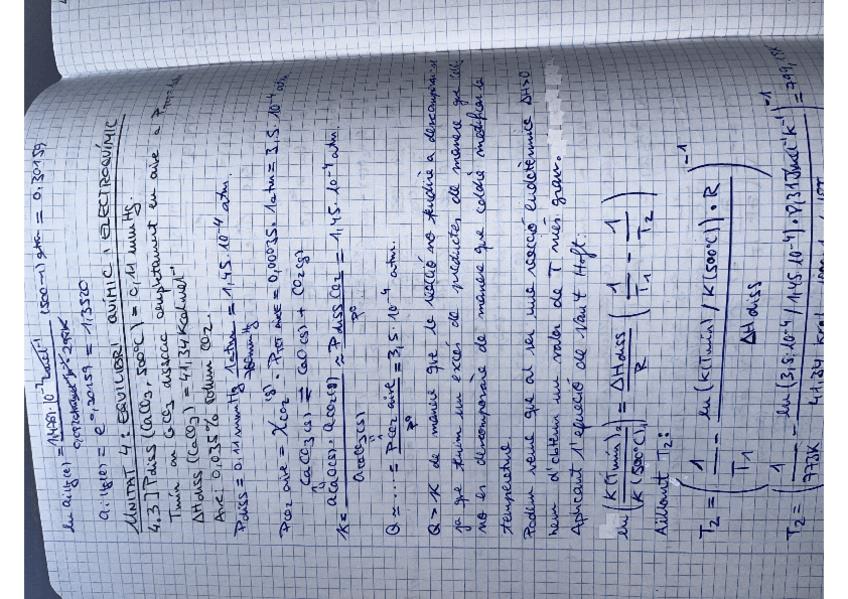 ln a_i,Hg(e) = 1,4761·10⁻² L mol⁻¹ (500-1) atm = 0.30159
a_i,Hg(e) = e^0,30159 = 1,3520
UNITAT 4: EQUILIBRI QUÍMIC I ELECTROQUÍMIC
4.3] Pdiss (CaCO3, 500°C) = 0,11 mmHg.
Tmin on CaCO3 dissocia completament en aire a
ΔHdiss (CaCO3) = 41,34 Kcal mol⁻¹
Aire: 0,035% volum CO2.
Pdiss = 0.11 mmHg 1 atm / 760 mmHg = 1,45·10⁻⁴ atm.
PCO2 aire = XCO2(g) · PTOT AIRE = 0,00035 · 1 atm = 3.5·10⁻⁴ atm
CaCO3(s) ⇌ CaO(s) + CO2(g)
K = aCaO(s) · aCO2(g) / aCaCO3(s) ≈ Pdiss CO2 / P° = 1,45·10⁻⁴ atm.
Q = ... = PCO2 aire / P° = 3,5·10⁻⁴ atm.
Q > K de manera que la reacció no tendirà a descompondre
ja que tenim un excés de productes de manera que
no es descompondrà de manera que caldrà modificar la
temperatura
Podem veure que al ser una reacció endotèrmica ΔH>0
hem d'obtenir un valor de T més gran.
Aplicant l'equació de Van't Hoff:
ln (K(Tmin) / K(500°C)) = ΔHdiss / R (1/T1 - 1/T2)
Aïllant T2:
T2 = (1/T1 - ln (K(Tmin) / K(500°C)) · R / ΔHdiss)⁻¹
T2 = (1/773K - ln (3,5·10⁻⁴ / 1.45·10⁻⁴) · 8,31 J mol⁻¹ K⁻¹ / 41,34 Kcal)⁻¹